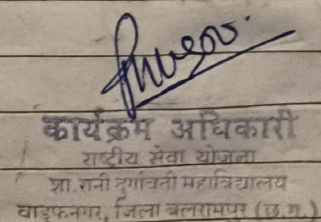 कार्यक्रम अधिकारी
राष्ट्रीय सेवा योजना
शा. रानी दुर्गावती महाविद्यालय
वाड्रफनगर, जिला बलरामपुर (छ.ग.)